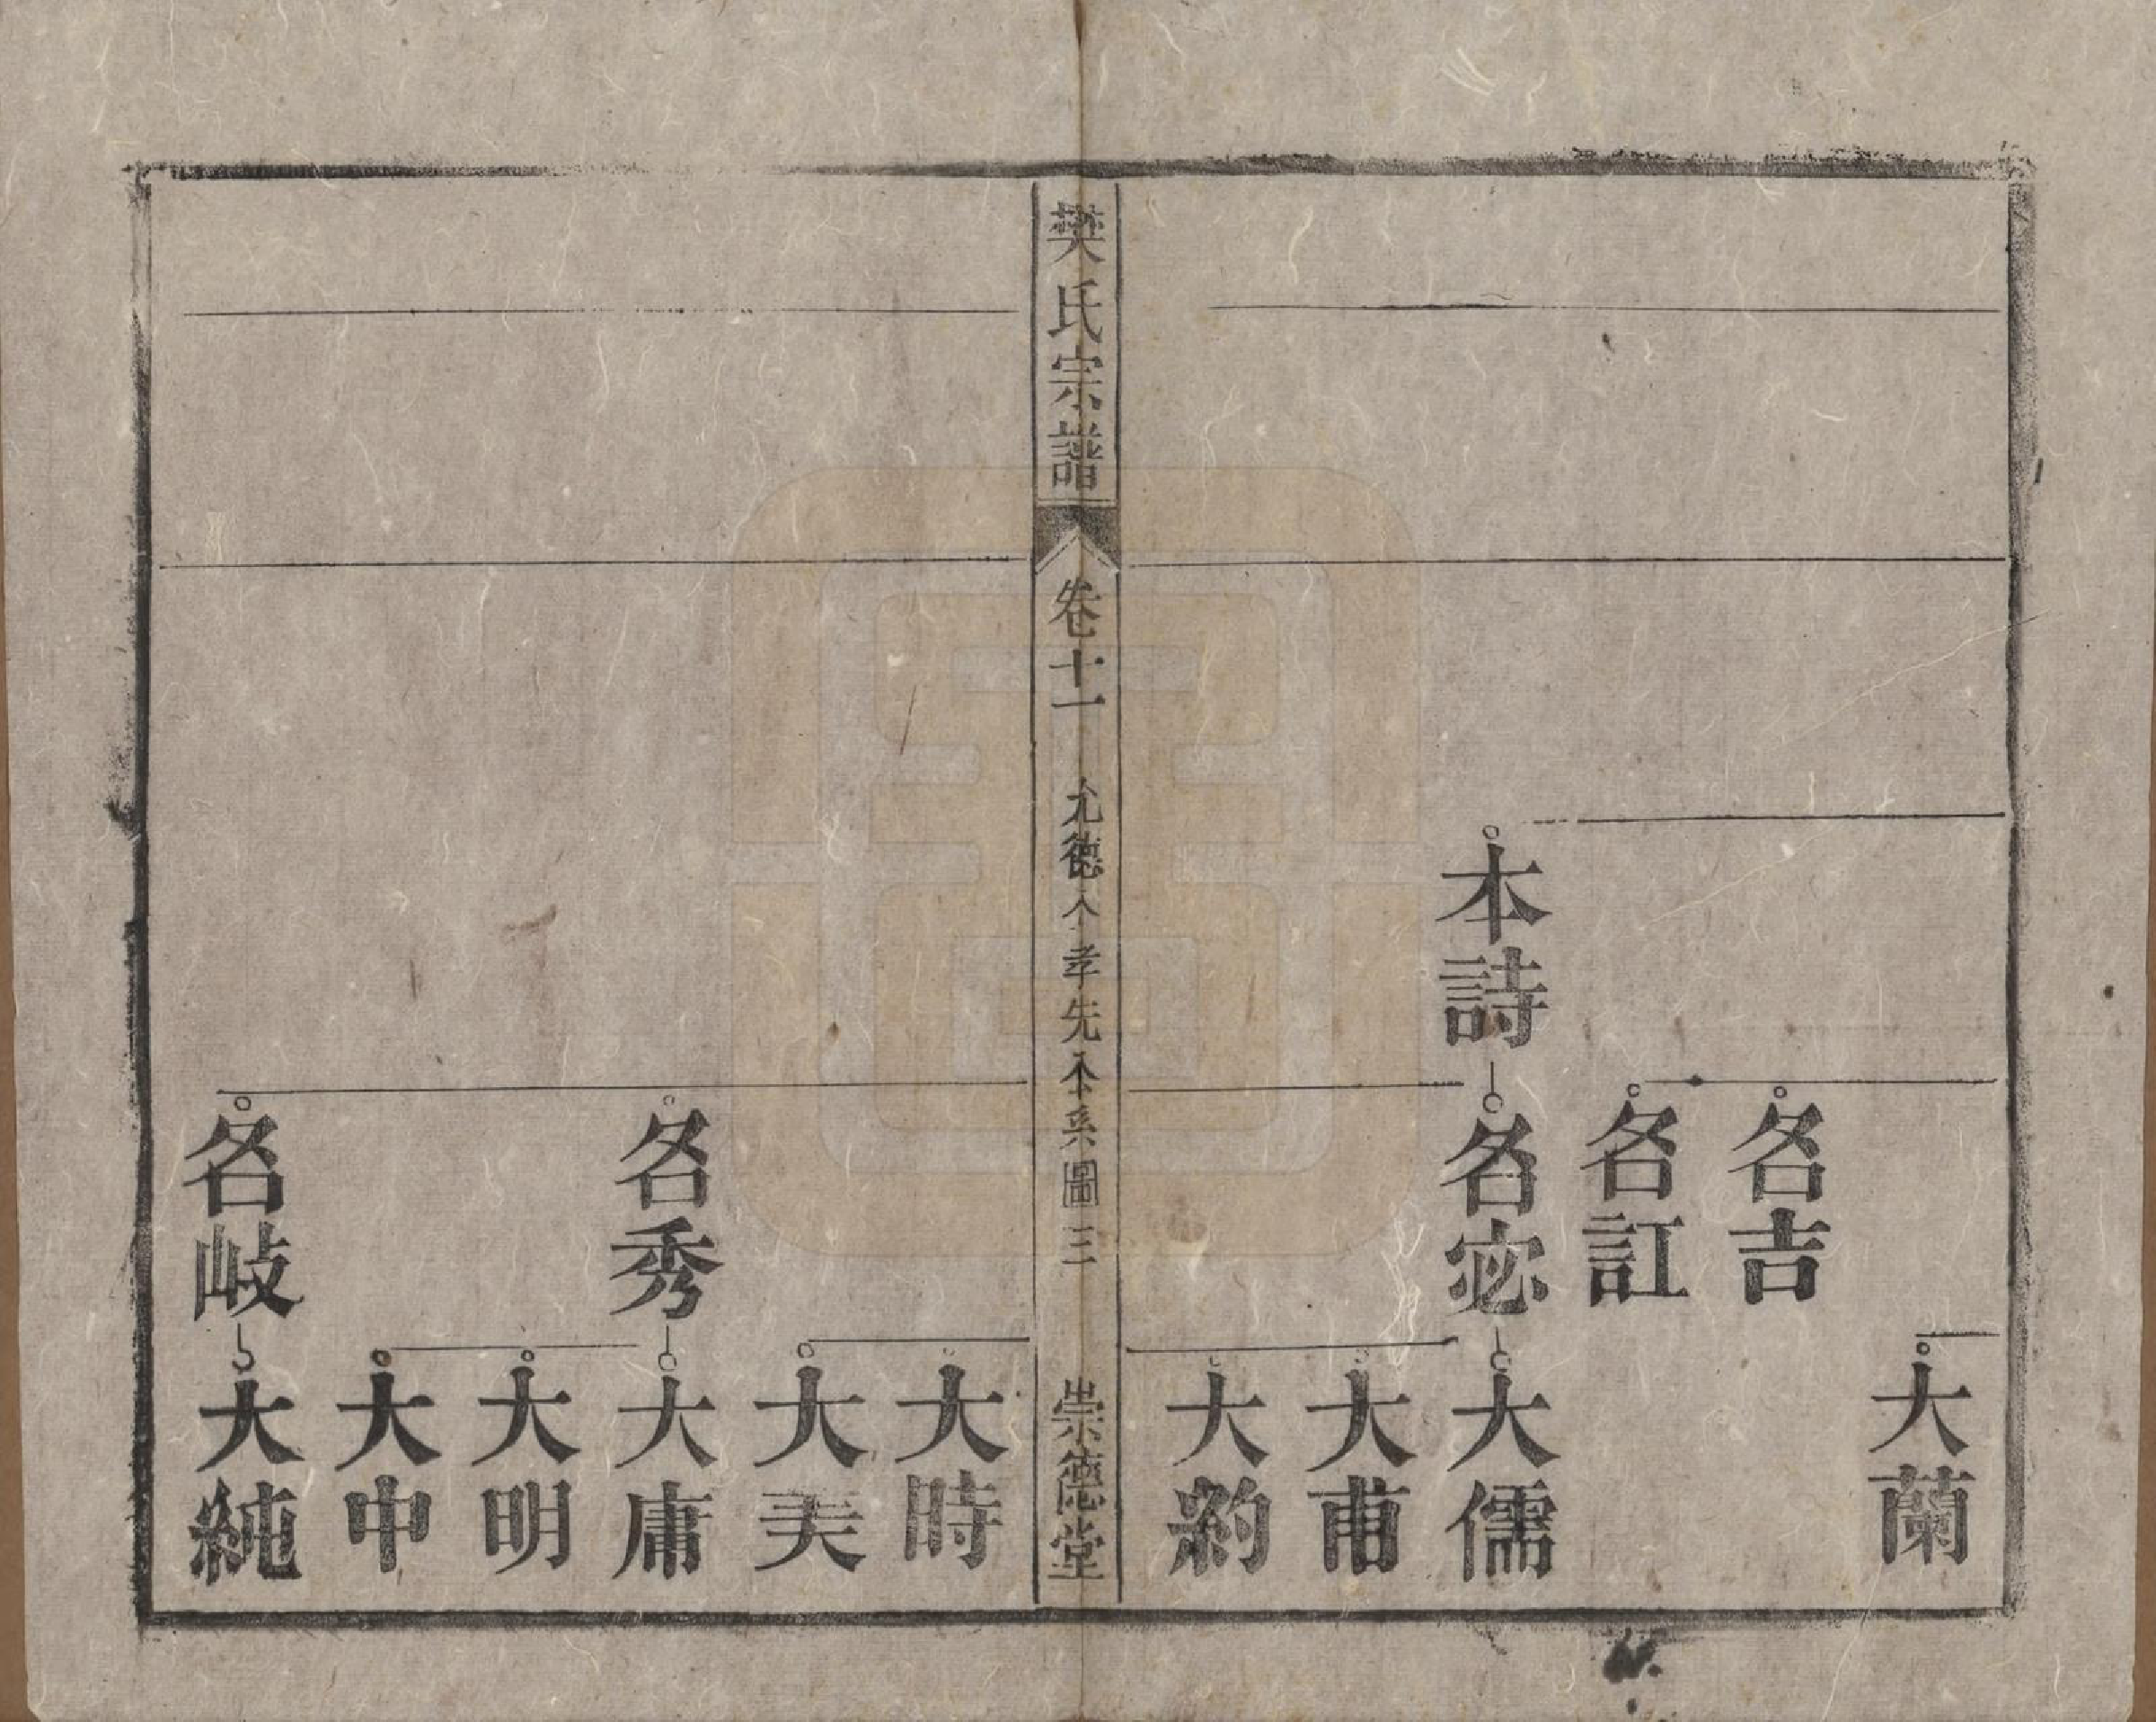 大蘭
名吉
名訌
本詩
名宓
大儒
大甫
大約
樊氏宗譜
卷十一
允德公孝先公系圖
三
崇德堂
大時
大美
名秀
大庸
大明
大中
名岐
大純